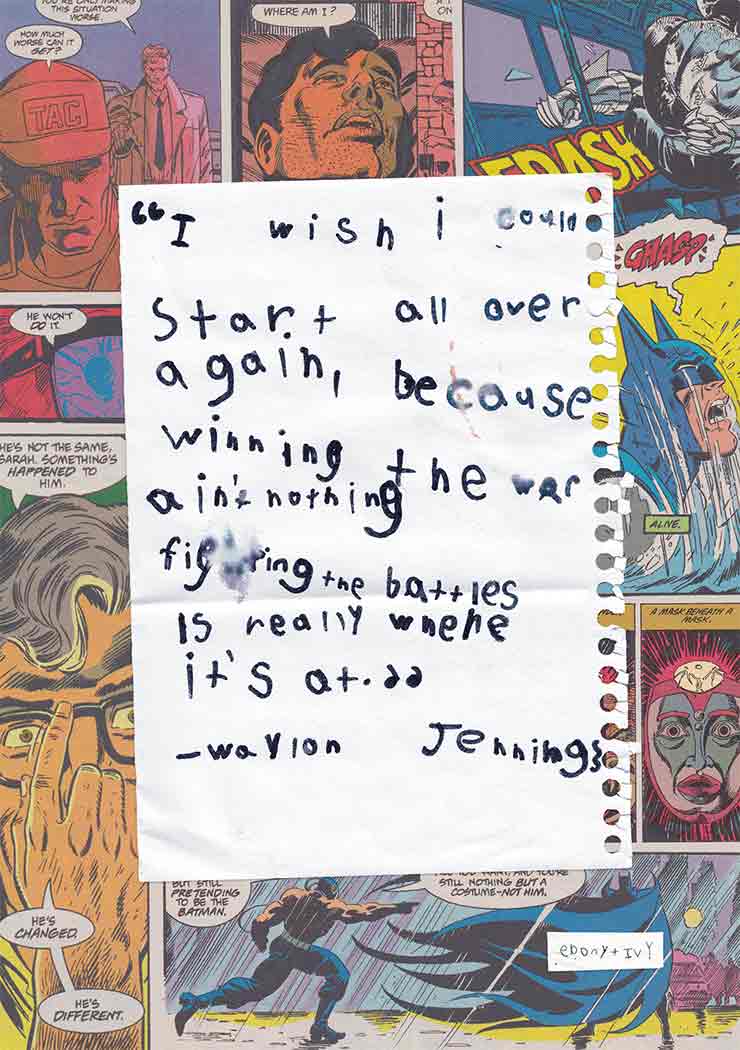 YOU'RE ONLY MAKING
THIS SITUATION
WORSE.
HOW MUCH
WORSE CAN IT
GET?
TAC
WHERE AM I?
ON
GHASP
HE WON'T
DO IT.
HE'S NOT THE SAME,
SARAH. SOMETHING'S
HAPPENED TO
HIM.
“I wish i could
Start all over
again, because
winning the war
ain't nothing
the battles
is really where
it's at.”
-waylon Jennings
ALIVE.
A MASK BENEATH A
MASK.
HE'S
CHANGED.
HE'S
DIFFERENT.
BUT STILL
PRETENDING
TO BE THE
BATMAN.
YOU WANT, AND YOU'RE
STILL NOTHING BUT A
COSTUME--NOT HIM.
ebony+IVY